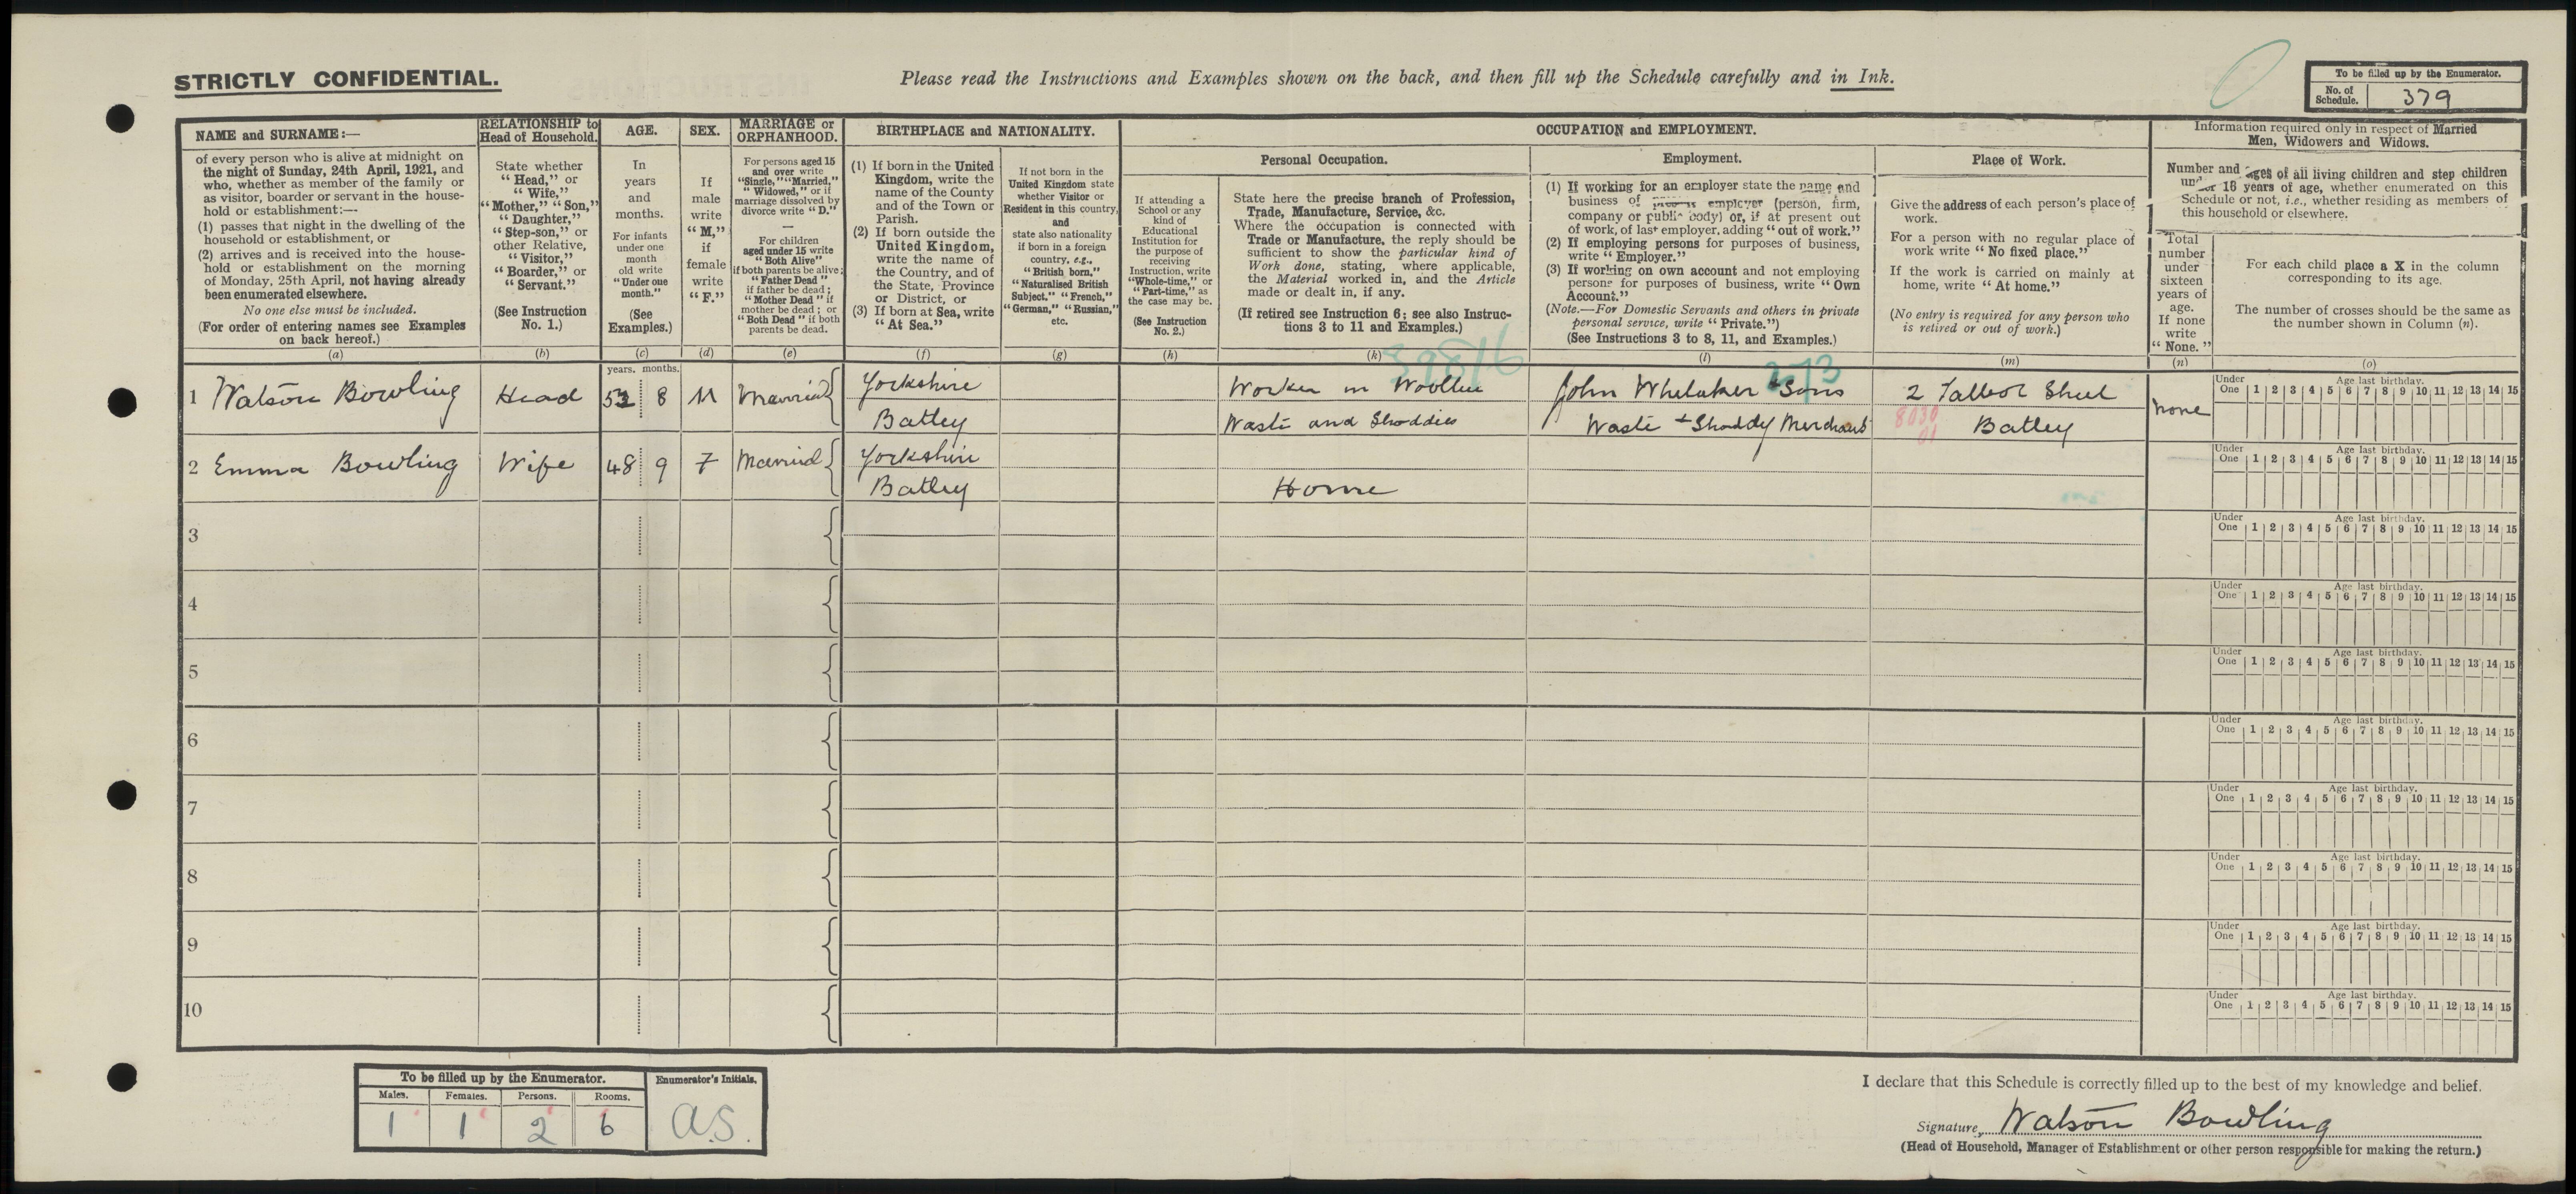 STRICTLY CONFIDENTIAL.
Please read the Instructions and Examples shown on the back, and then fill up the Schedule carefully and in Ink.
To be filled up by the Enumerator.
No. of Schedule. 379
NAME and SURNAME:—
of every person who is alive at midnight on
the night of Sunday, 24th April, 1921, and
who, whether as member of the family or
as visitor, boarder or servant in the house-
hold or establishment:—
(1) passes that night in the dwelling of the
household or establishment, or
(2) arrives and is received into the house-
hold or establishment on the morning
of Monday, 25th April, not having already
been enumerated elsewhere.
No one else must be included.
(For order of entering names see Examples
on back hereof.)
(a)
RELATIONSHIP to
Head of Household.
State whether
"Head," or
"Wife,"
"Mother," "Son,"
"Daughter,"
"Step-son," or
other Relative,
"Visitor,"
"Boarder," or
"Servant."
(See Instruction
No. 1.)
(b)
AGE.
In
years
and
months.
For infants
under one
month
old write
"Under one
month."
(See
Examples.)
(c)
SEX.
If
male
write
"M,"
if
female
write
"F."
(d)
MARRIAGE or
ORPHANHOOD.
For persons aged 15
and over write
"Single," "Married,"
"Widowed," or if
marriage dissolved by
divorce write "D."
—
For children
aged under 15 write
"Both Alive"
if both parents be alive;
"Father Dead"
if father be dead;
"Mother Dead" if
mother be dead; or
"Both Dead" if both
parents be dead.
(e)
BIRTHPLACE and NATIONALITY.
(1) If born in the United
Kingdom, write the
name of the County
and of the Town or
Parish.
(2) If born outside the
United Kingdom,
write the name of
the Country, and of
the State, Province
or District, or
(3) If born at Sea, write
"At Sea."
(f)
If not born in the
United Kingdom state
whether Visitor or
Resident in this country,
and
state also nationality
if born in a foreign
country, e.g.,
"British born,"
"Naturalised British
Subject," "French,"
"German," "Russian,"
etc.
(g)
OCCUPATION and EMPLOYMENT.
Personal Occupation.
If attending a
School or any
kind of
Educational
Institution for
the purpose of
receiving
Instruction, write
"Whole-time," or
"Part-time," as
the case may be.
(See Instruction
No. 2.)
(h)
State here the precise branch of Profession,
Trade, Manufacture, Service, &c.
Where the occupation is connected with
Trade or Manufacture, the reply should be
sufficient to show the particular kind of
Work done, stating, where applicable,
the Material worked in, and the Article
made or dealt in, if any.
(If retired see Instruction 6; see also Instruc-
tions 3 to 11 and Examples.)
(k)
Employment.
(1) If working for an employer state the name and
business of employer (person, firm,
company or public body) or, if at present out
of work, of last employer, adding "out of work."
(2) If employing persons for purposes of business,
write "Employer."
(3) If working on own account and not employing
persons for purposes of business, write "Own
Account."
(Note.—For Domestic Servants and others in private
personal service, write "Private.")
(See Instructions 3 to 8, 11, and Examples.)
(l)
Place of Work.
Give the address of each person's place of
work.
For a person with no regular place of
work write "No fixed place."
If the work is carried on mainly at
home, write "At home."
(No entry is required for any person who
is retired or out of work.)
(m)
Information required only in respect of Married
Men, Widowers and Widows.
Number and ages of all living children and step children
under 16 years of age, whether enumerated on this
Schedule or not, i.e., whether residing as members of
this household or elsewhere.
Total
number
under
sixteen
years of
age.
If none
write
"None."
(n)
For each child place a X in the column
corresponding to its age.
The number of crosses should be the same as
the number shown in Column (n).
(o)
years. months.
398/6
273
1 Watson Bowling Head 53 8 M Married Yorkshire Worker in Woollen John Whitaker & Sons 2 Talbot Street None
Batley Waste and Shoddies Waste & Shoddy Merchants Batley
8030
01
Under One Age last birthday. 1 2 3 4 5 6 7 8 9 10 11 12 13 14 15
2 Emma Bowling Wife 48 9 F Married Yorkshire
Batley Home
Under One Age last birthday. 1 2 3 4 5 6 7 8 9 10 11 12 13 14 15
3
Under One Age last birthday. 1 2 3 4 5 6 7 8 9 10 11 12 13 14 15
4
Under One Age last birthday. 1 2 3 4 5 6 7 8 9 10 11 12 13 14 15
5
Under One Age last birthday. 1 2 3 4 5 6 7 8 9 10 11 12 13 14 15
6
Under One Age last birthday. 1 2 3 4 5 6 7 8 9 10 11 12 13 14 15
7
Under One Age last birthday. 1 2 3 4 5 6 7 8 9 10 11 12 13 14 15
8
Under One Age last birthday. 1 2 3 4 5 6 7 8 9 10 11 12 13 14 15
9
Under One Age last birthday. 1 2 3 4 5 6 7 8 9 10 11 12 13 14 15
10
Under One Age last birthday. 1 2 3 4 5 6 7 8 9 10 11 12 13 14 15
To be filled up by the Enumerator.
Males. Females. Persons. Rooms.
1 1 2 6
Enumerator's Initials.
A.S.
I declare that this Schedule is correctly filled up to the best of my knowledge and belief.
Signature, Watson Bowling
(Head of Household, Manager of Establishment or other person responsible for making the return.)